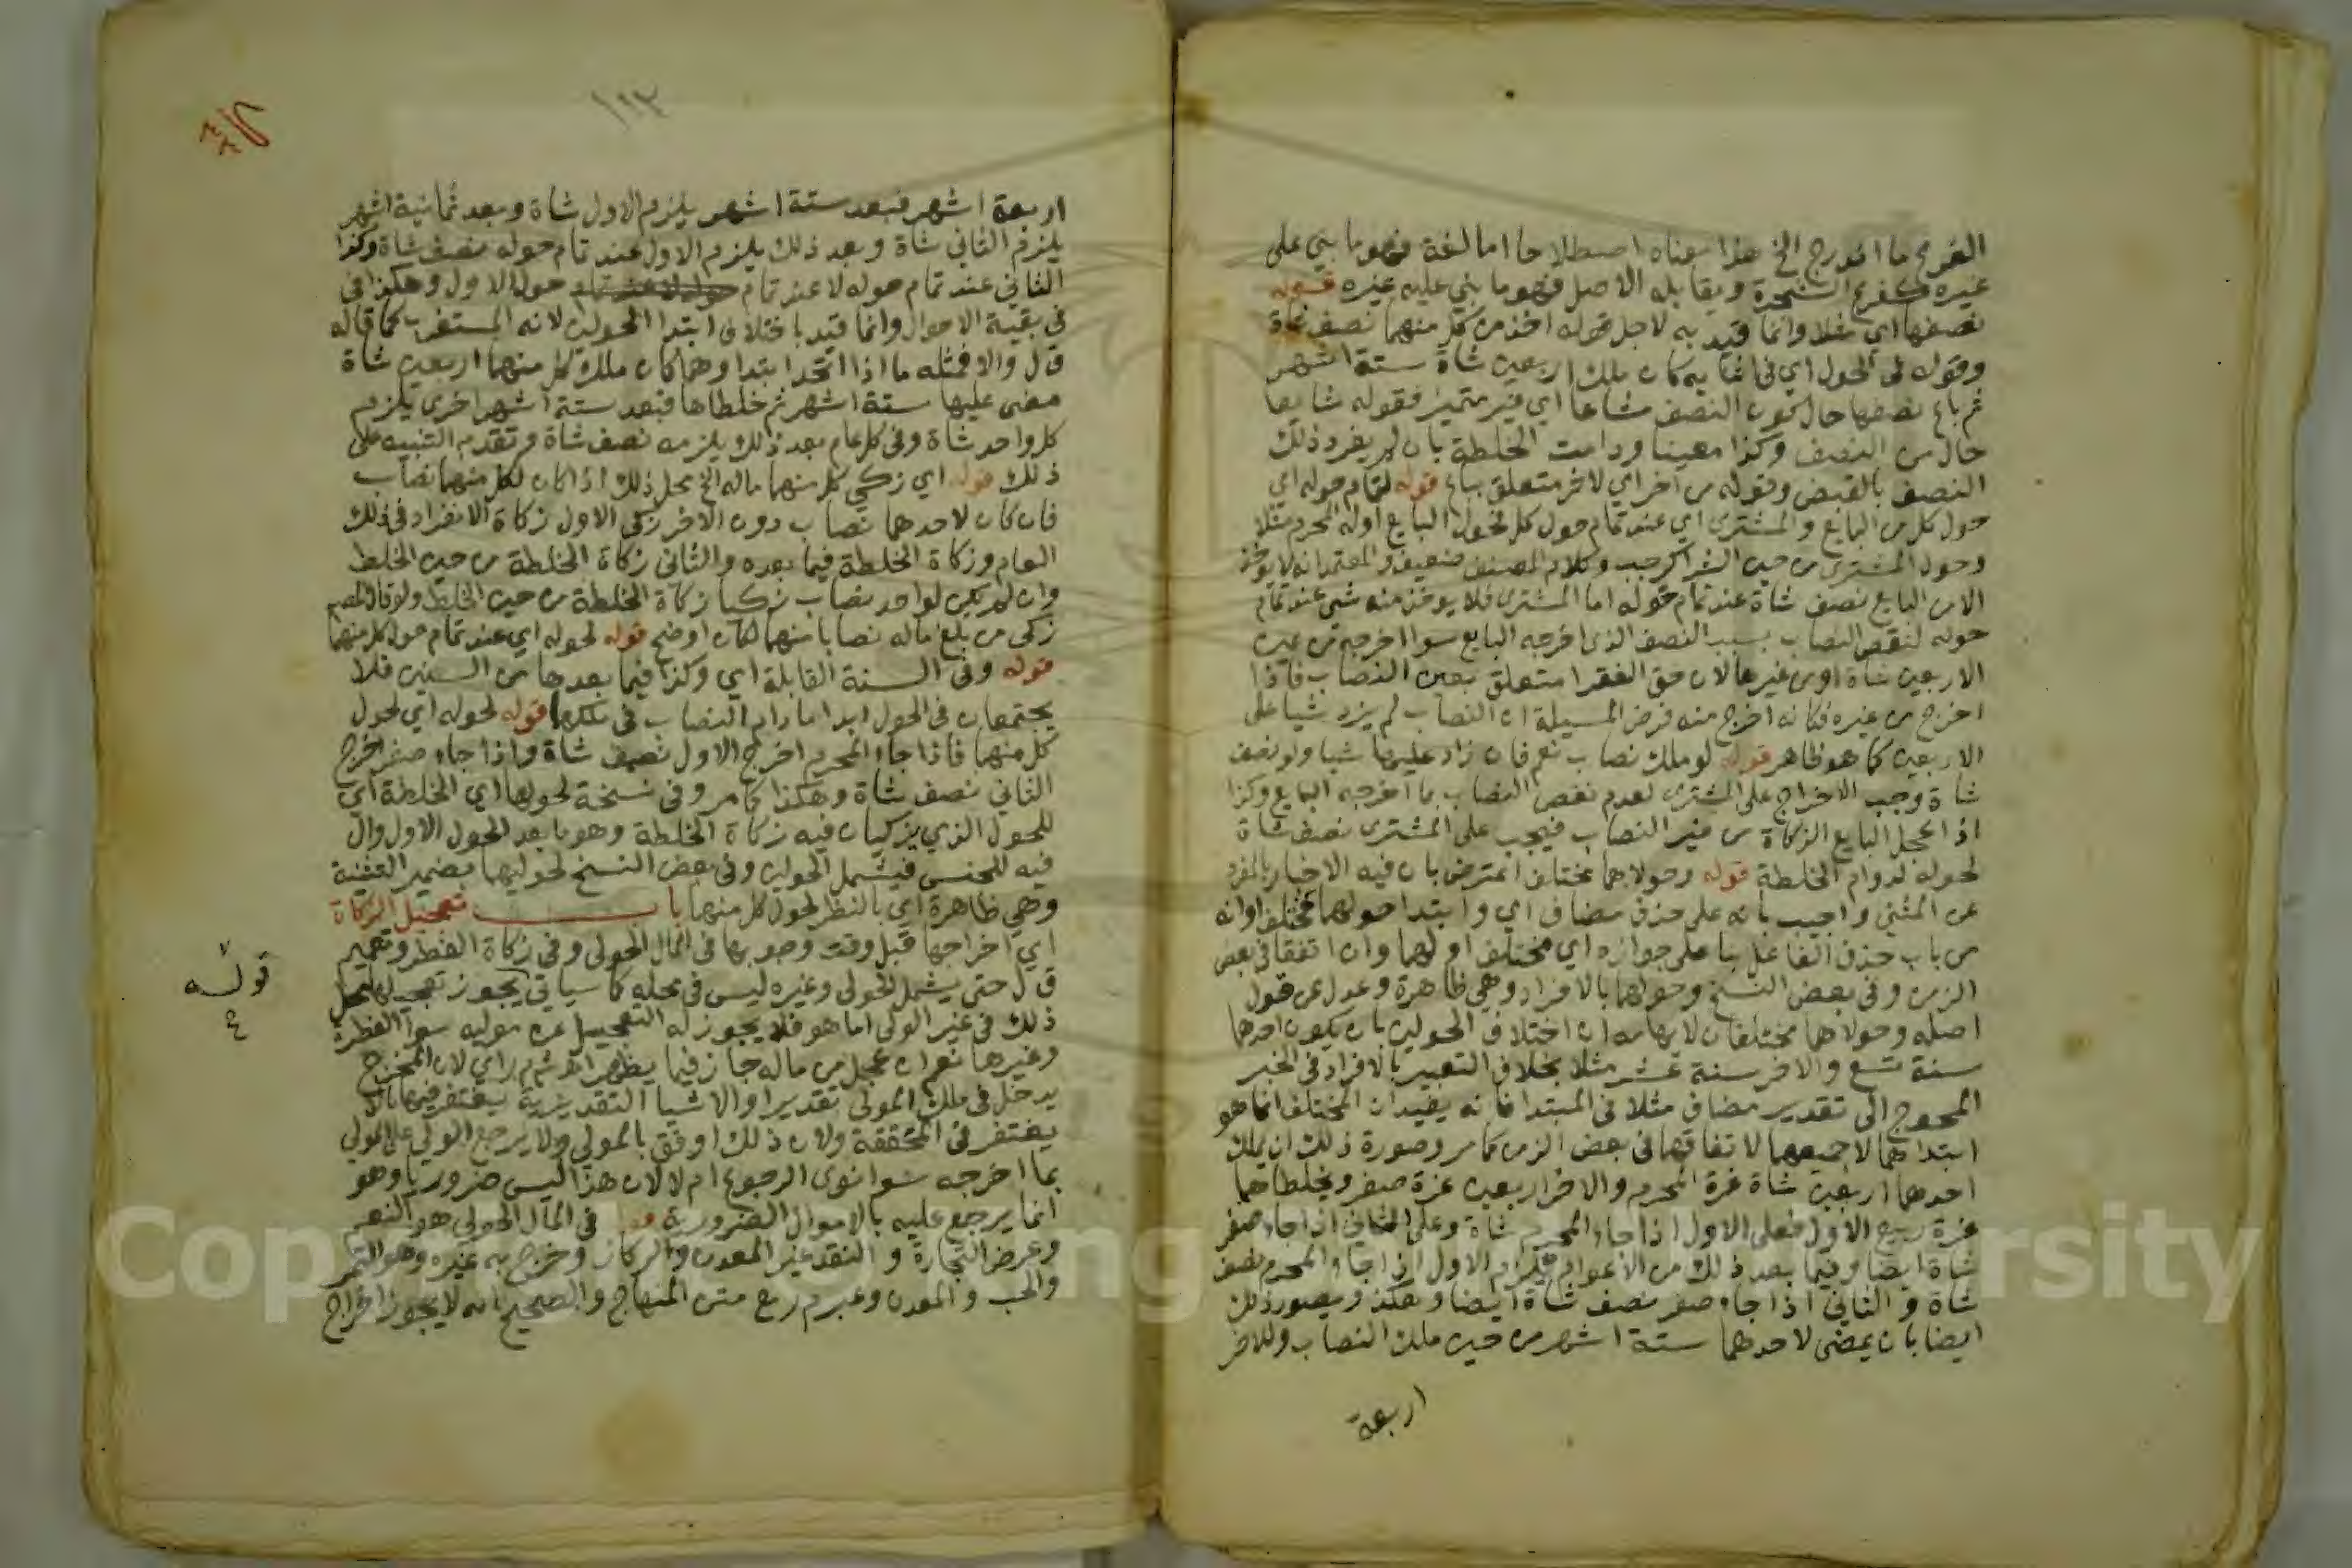 الفرع ما اندرج الخ هذا معناه اصطلاحا اما لغة فهو ما بني على
غيره كفرع الشجرة ويقابله الاصل فهو ما بني عليه غيره قوله
نصفها اي مثلا وانما قيد به لاجل قوله اخذ من كل منهما نصف شاة
وقوله في الحول اي في اثنايه كان ملك اربعين شاة ستة اشهر
ثم باع نصفها حال كون النصف مشاعا اي غير متميز فقوله شايعا
حال من النصف وكذا معينا ودامت الخلطة بان لم يفرد ذلك
النصف بالقبض وقوله من اخر اي لاخر متعلق بباع قوله لتمام حوله اي
حول كل من البايع والمشتري اي عند تمام حول كل فحول البايع اوله المحرم مثلا
وحول المشتري من حين الشرا كرجب وكلام المصنف ضعيف والمعتمد انه لا يوخذ
الا من البايع نصف شاة عند تمام حوله اما المشتري فلا يوخذ منه شي عند تمام
حوله لنقص النصاب بسبب النصف الذي اخرجه البايع سوا اخرجه من عين
الاربعين شاة او من غيرها لان حق الفقرا متعلق بعين النصاب فاذا
اخرج من غيره فكانه اخرج منه فرض المسيلة ان النصاب لم يزد شيا على
الاربعين كما هو ظاهر قوله لو ملك نصاب نعم فان زاد عليها شيا ولو نصف
شاة وجب الاخراج على المشتري لعدم نقص النصاب بما اخرجه البايع وكذا
اذا عجل البايع الزكاة من غير النصاب فيجب على المشتري نصف شاة
لحوله لدوام الخلطة قوله وحولاهما مختلف اعترض بان فيه الاخبار بالمفرد
عن المثني واجيب بانه على حذف مضاف اي وابتدا حولهما مختلف او انه
من باب حذف الفاعل بنا على جوازه اي مختلف اولهما وان اتفقا في بعض
الزمن وفي بعض النسخ وحولهما بالافراد وهي ظاهرة وعدل عن قول
اصله وحولاهما مختلفان لايهامه ان اختلاف الحولين بان يكون احدهما
سنة تسع والاخر سنة عشر مثلا بخلاف التعبير بالافراد في الخبر
المحوج الى تقدير مضاف مثلا في المبتدا فانه يفيد ان المختلف انما هو
ابتداهما لا جميعهما لاتفاقهما في بعض الزمن كما مر وصورة ذلك ان يملك
احدهما اربعين شاة غرة المحرم والاخر اربعين غرة صفر ويخلطاهما
غرة ربيع الاول فعلى الاول اذا جاء المحرم شاة وعلى الثاني اذا جاء صفر
شاة ايضا وفيما بعد ذلك من الاعوام فيلزم الاول اذا جاء المحرم نصف
شاة والثاني اذا جاء صفر نصف شاة ايضا وهكذا ويصور ذلك
ايضا بان يمضي لاحدهما ستة اشهر من حين ملك النصاب وللاخر
اربعة
١٢٣
اربعة اشهر فبعد ستة اشهر يلزم الاول شاة وبعد ثمانية اشهر
يلزم الثاني شاة وبعد ذلك يلزم الاول عند تمام حوله نصف شاة وكذا
الثاني عند تمام حوله لا عند تمام حول الاول وهكذا في
في بقية الاحوال وانما قيد باختلاف ابتدا الحولين لانه المستغرب كما قاله
ق ل والا فمثله ما اذا اتحد ابتداوهما كان ملك كل منهما اربعين شاة
مضى عليها ستة اشهر ثم خلطاها فبعد ستة اشهر اخرى يلزم
كل واحد شاة وفي كل عام بعد ذلك يلزمه نصف شاة وتقدم التنبيه على
ذلك قوله اي زكي كل منهما ماله الخ محل ذلك اذا كان لكل منهما نصاب
فان كان لاحدهما نصاب دون الاخر زكى الاول زكاة الانفراد في ذلك
العام وزكاة الخلطة فيما بعده والثاني زكاة الخلطة من حين الخلط
وان لم يكن لواحد نصاب زكيا زكاة الخلطة من حين الخلط ولو قال المص
زكى من بلغ ماله نصابا منهما لكان اوضح قوله لحوله اي عند تمام حول كل منهما
قوله وفي السنة القابلة اي وكذا فيما بعدها من السنين فلا
يجتمعان في الحول ابدا ما دام النصاب في ملكهما قوله لحوله اي لحول
كل منهما فاذا جاء المحرم اخرج الاول نصف شاة واذا جاء صفر اخرج
الثاني نصف شاة وهكذا كما مر وفي نسخة لحولها اي الخلطة اي
للحول الذي يزكيان فيه زكاة الخلطة وهو ما بعد الحول الاول وال
فيه للجنس فيشمل الحولين وفي بعض النسخ لحوليهما بضمير التثنية
وهي ظاهرة اي بالنظر لحول كل منهما باب تعجيل الزكاة
اي اخراجها قبل وقت وجوبها في المال الحولي وفي زكاة الفطر وتعميم
ق ل حتى يشمل الحولي وغيره ليس في محله كما سياتي يجوز تعجيلها محل
ذلك في غير الولي اما هو فلا يجوز له التعجيل عن موليه سوا الفطرة
وغيرها نعم ان عجل من ماله جاز فيما يظهر اه شم م ر اي لان المخرج
يدخل في ملك المولي تقديرا والاشيا التقديرية يغتفر فيها ما لا
يغتفر في المحققة ولان ذلك اوفق بالمولي ولا يرجع الولي على المولي
بما اخرجه سوا نوى الرجوع ام لا لان هذا ليس ضروريا وهو
انما يرجع عليه بالاموال الضرورية قوله في المال الحولي هو النعم
وعرض التجارة والنقد غير المعدن والركاز وخرج به غيره وهو الثمر
والحب والمعدن وعبر م ر مع متن المنهاج والصحيح انه لا يجوز اخراج
قوله
٤